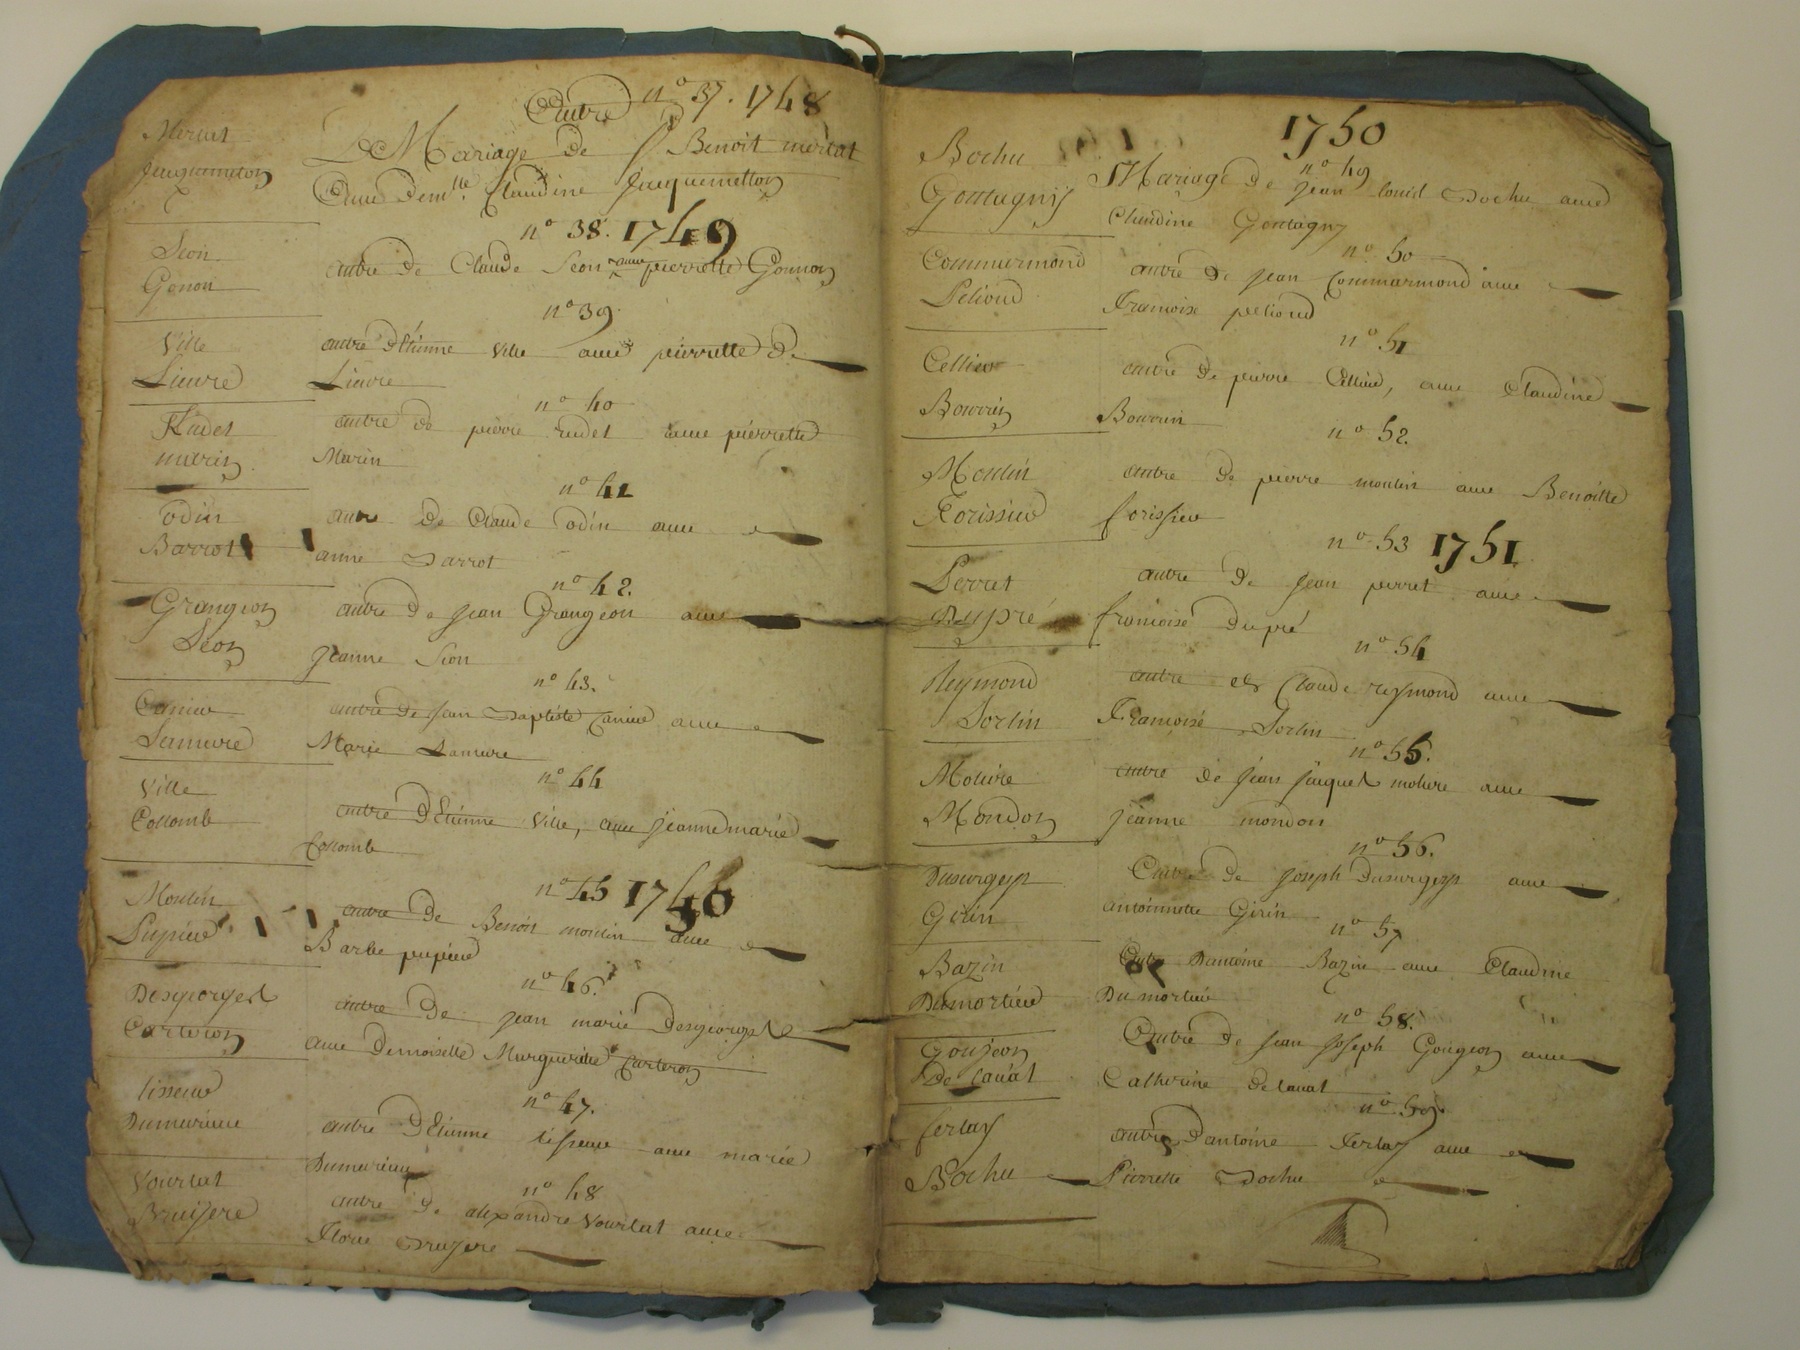 Autre n° 37. 1748
Merlat
Jacquemetton
Mariage de Sr Benoit merlat
avec Demlle Claudine Jacquemetton
n° 38. 1749
Seon
Gonon
autre de Claude Seon avec pierrette Gonnon
n° 39
Ville
Lieure
autre d'Etienne Ville avec pierrette
Lieure
n° 40
Rudet
marin
autre de pierre rudet avec pierrette
Marin
n° 41
odin
Barrot
autre de Claude odin avec
anne Barrot
n° 42.
Grangeon
Seon
autre de Jean Grangeon avec
Jeanne Seon
n° 43.
Canier
Lamure
autre de Jean Baptiste Canier avec
Marie Lamure
n° 44
Ville
Collomb
autre d'Etienne Ville, avec Jeanne marie
Collomb
n° 45 1750
Moulin
Pupier
autre de Benoit moulin avec
Barbe pupier
n° 46.
Desgeorges
Carteron
autre de jean marie Desgeorges
avec demoiselle Marguerite Carteron
n° 47.
tisseur
Dumurieur
autre d'Etienne tisseur avec marie
Dumurieur
n° 48
Vourlat
Bruijere
autre de alexandre Vourlat avec
Florie Bruijere
1750
n° 49
Bochu
Gontagny
Mariage de Jean Louis Bochu avec
Claudine Gontagny
n° 50
Commarmond
Peliond
autre de Jean Commarmond avec
Francoise peliond
n° 51
Cellier
Bourrin
autre de pierre Cellier, avec Claudine
Bourrin
n° 52.
Moulin
Forissier
autre de pierre moulin avec Benoitte
forissier
n° 53 1751
Perret
Dupré
autre de Jean perret avec
francoise dupré
n° 54
Reymond
Sorlin
autre de Claude reymond avec
Francoise Sorlin
n° 55.
Moliere
Mondon
autre de Jean Jacques moliere avec
jeanne mondon
n° 56.
Dusurgeyr
Girin
Autre de Joseph Dusurgeyr avec
antoinette Girin
n° 57
Bazin
Dumortier
Autre Dantoine Bazin avec Claudine
Dumortier
n° 58.
Goujeon
De Lavat
Autre de Jean Joseph Gougeon avec
Catherine delavat
n° 59.
ferlay
Bochu
autre Dantoine Ferlay avec
Pierrette Bochu